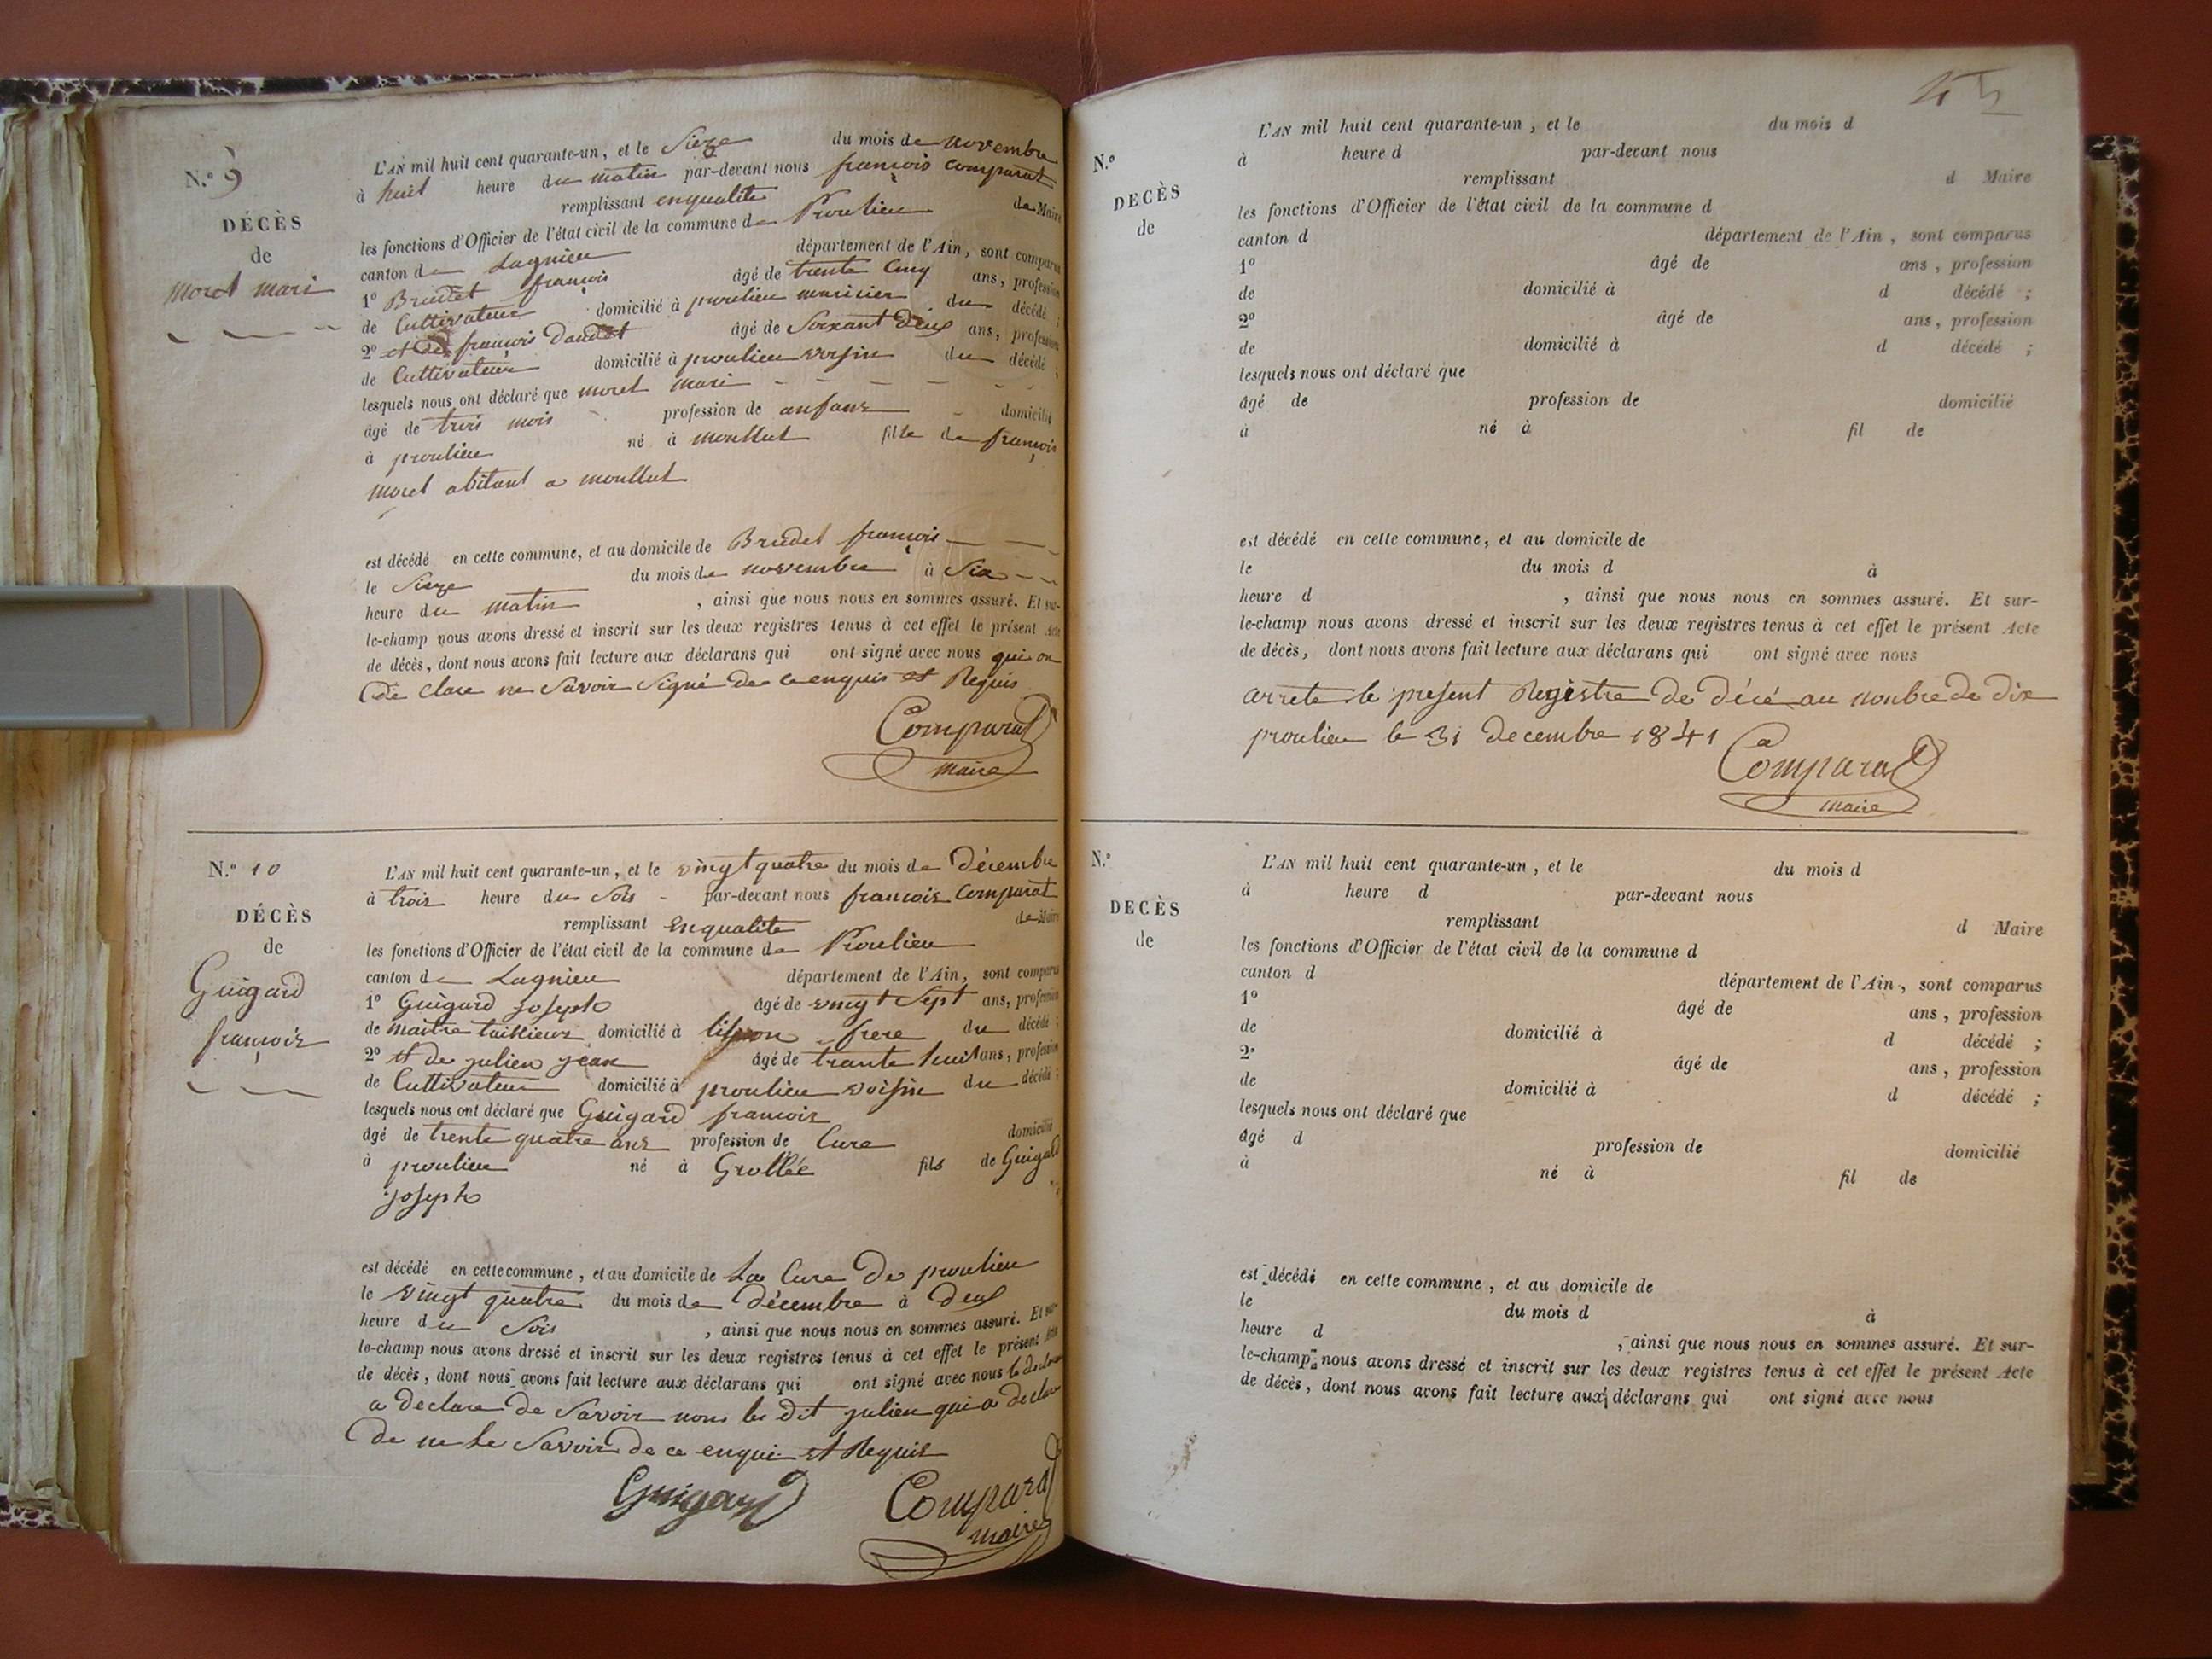 N.º 9
DÉCÈS
de
moret mari
L'AN mil huit cent quarante-un, et le Sieze du mois de novembre
à huit heure du matin par-devant nous françois Comparat
remplissant enqualite de Maire
les fonctions d'Officier de l'état civil de la commune de Proulieu
canton de Lagnieu département de l'Ain, sont comparus
1º Brudet françois âgé de trente Cinq ans, profession
de Cultivateur domicilié à proulieu du décédé ;
2º et de françois âgé de Soixant deux ans, profession
de Cultivateur domicilié à proulieu voisin du décédé ;
lesquels nous ont déclaré que moret mari
âgé de trois mois profession de anfant domicilié
à proulieu né à fille de françois
moret abitant a
est décédé en cette commune, et au domicile de Brudet françois
le Sieze du mois de novembre à Six
heure du matin , ainsi que nous nous en sommes assuré. Et sur-
le-champ nous avons dressé et inscrit sur les deux registres tenus à cet effet le présent Acte
de décès, dont nous avons fait lecture aux déclarans qui ont signé avec nous qui on
de clare ne Savoir Signé de ce enquis et Requis
Comparat
maire
N.º 10
DÉCÈS
de
Guigard
françois
L'AN mil huit cent quarante-un, et le vingt quatre du mois de décembre
à trois heure du Soir par-devant nous françois Comparat
remplissant Enqualite de Maire
les fonctions d'Officier de l'état civil de la commune de Proulieu
canton de Lagnieu département de l'Ain, sont comparus
1º Guigard joseph âgé de vingt Sept ans, profession
de maitre taillieur domicilié à frere du décédé ;
2º et de julien jean âgé de trante huit ans, profession
de Cultivateur domicilié à proulieu voisin du décédé ;
lesquels nous ont déclaré que Guigard francois
âgé de trente quatre ans profession de Cure domicilié
à proulieu né à Grollée fils de Guigard
joseph
est décédé en cette commune, et au domicile de La Cure De proulieu
le vingt quatre du mois de décembre à deux
heure du Soir , ainsi que nous nous en sommes assuré. Et sur-
le-champ nous avons dressé et inscrit sur les deux registres tenus à cet effet le présent Acte
de décès, dont nous avons fait lecture aux déclarans qui ont signé avec nous
a declare de Savoir nous le dit julien qui a declare
de ne le Savoir de ce enqui et Requis
Guigard
Comparat
maire
N.º
DECÈS
de
L'AN mil huit cent quarante-un, et le du mois d
à heure d par-devant nous
remplissant d Maire
les fonctions d'Officier de l'état civil de la commune d
canton d département de l'Ain, sont comparus
1º âgé de ans, profession
de domicilié à d décédé ;
2º âgé de ans, profession
de domicilié à d décédé ;
lesquels nous ont déclaré que
âgé de profession de domicilié
à né à fil de
est décédé en cette commune, et au domicile de
le du mois d à
heure d , ainsi que nous nous en sommes assuré. Et sur-
le-champ nous avons dressé et inscrit sur les deux registres tenus à cet effet le présent Acte
de décès, dont nous avons fait lecture aux déclarans qui ont signé avec nous
arrete le present Registre de décé au nonbre de dix
proulieu le 31 decembre 1841
Comparat
maire
N.º
DECÈS
de
L'AN mil huit cent quarante-un, et le du mois d
à heure d par-devant nous
remplissant d Maire
les fonctions d'Officier de l'état civil de la commune d
canton d département de l'Ain, sont comparus
1º âgé de ans, profession
de domicilié à d décédé ;
2º âgé de ans, profession
de domicilié à d décédé ;
lesquels nous ont déclaré que
âgé d profession de domicilié
à né à fil de
est décédé en cette commune, et au domicile de
le du mois d à
heure d , ainsi que nous nous en sommes assuré. Et sur-
le-champ nous avons dressé et inscrit sur les deux registres tenus à cet effet le présent Acte
de décès, dont nous avons fait lecture aux déclarans qui ont signé avec nous